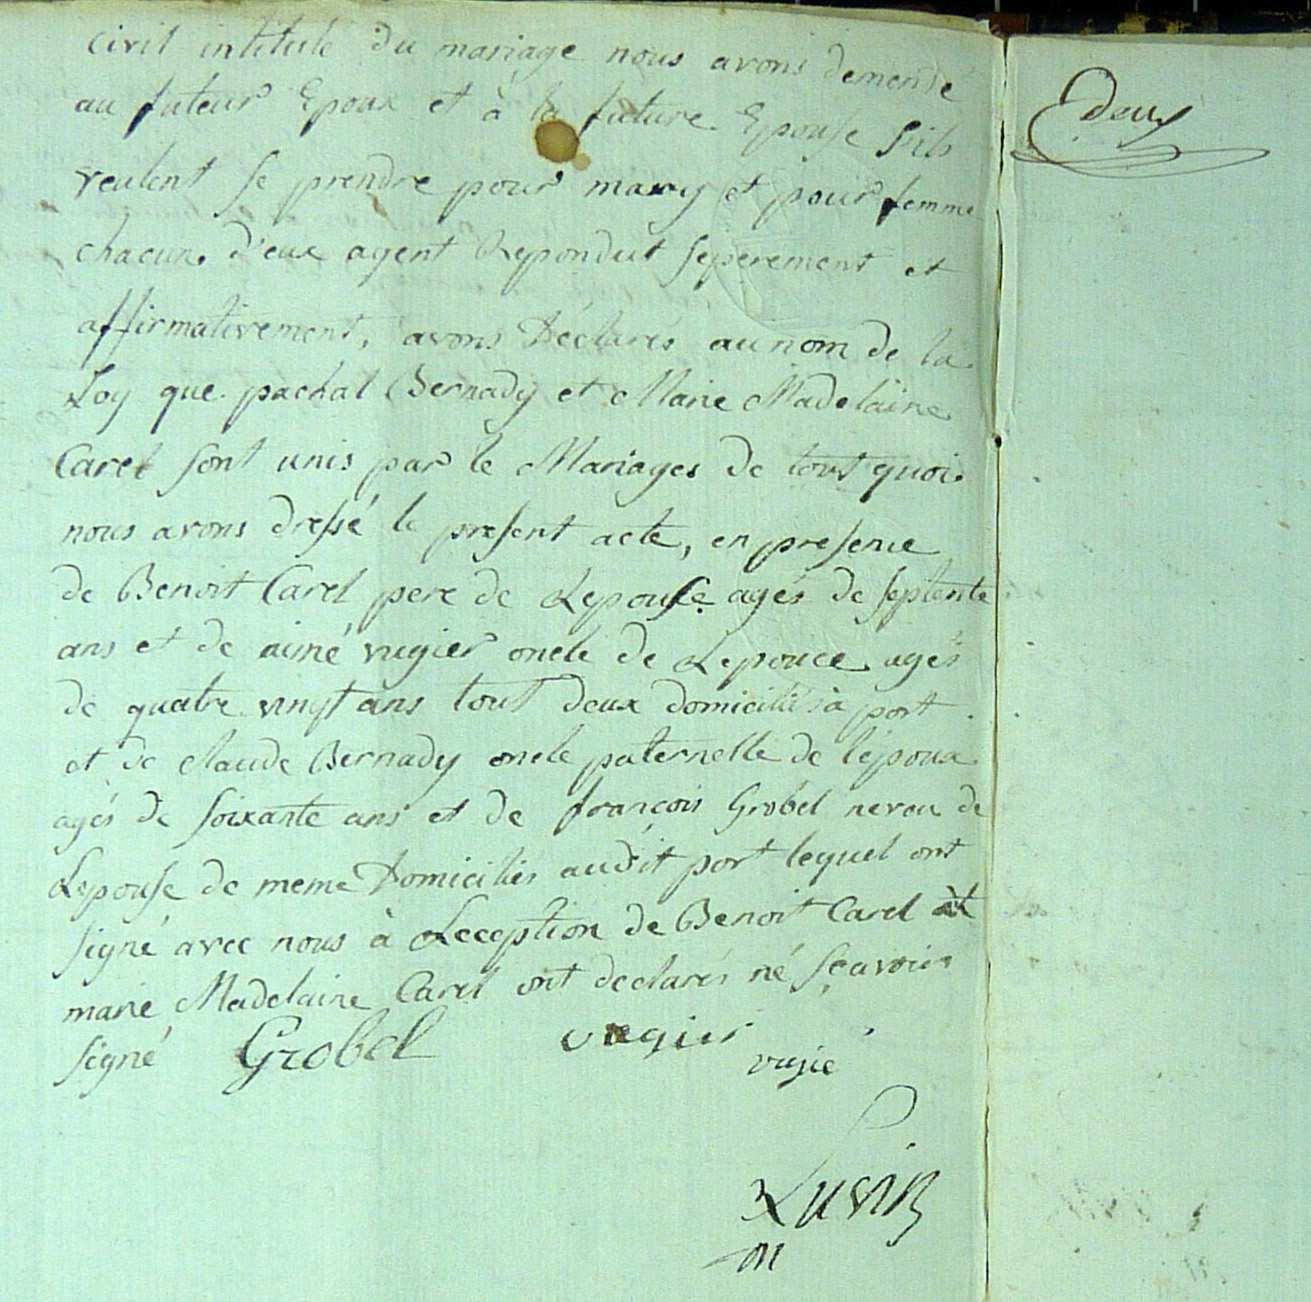 civil intitulé du mariage nous avons demendé
au futeur Epoux et à la future Epouse sils
veulent se prendre pour mary et pour femme
chacun d'eux agent Repondut seperement et
affirmativement, avons Déclarés au nom de la
Loy que pachal Bernady et Marie Madelaine
Carel sont unis par le Mariages de tout quoi
nous avons dressé le present acte, en presence
de Benoit Carel pere de Lepouse agés de septente
ans et de aimé vugier oncle de Lepouce agés
de quatre vingt ans tout deux domiciliés à port
et de claude Bernady oncle paternelle de lépoux
agés de soixante ans et de françois Grobel neveu de
Lepouse de meme Domiciliés audit port lequel ont
signé avec nous à Lecception de Benoit Carel et
marie Madelaine Carel ont declarés né sçavoir
signé Grobel vugier
vugie
Luvin
m
deux